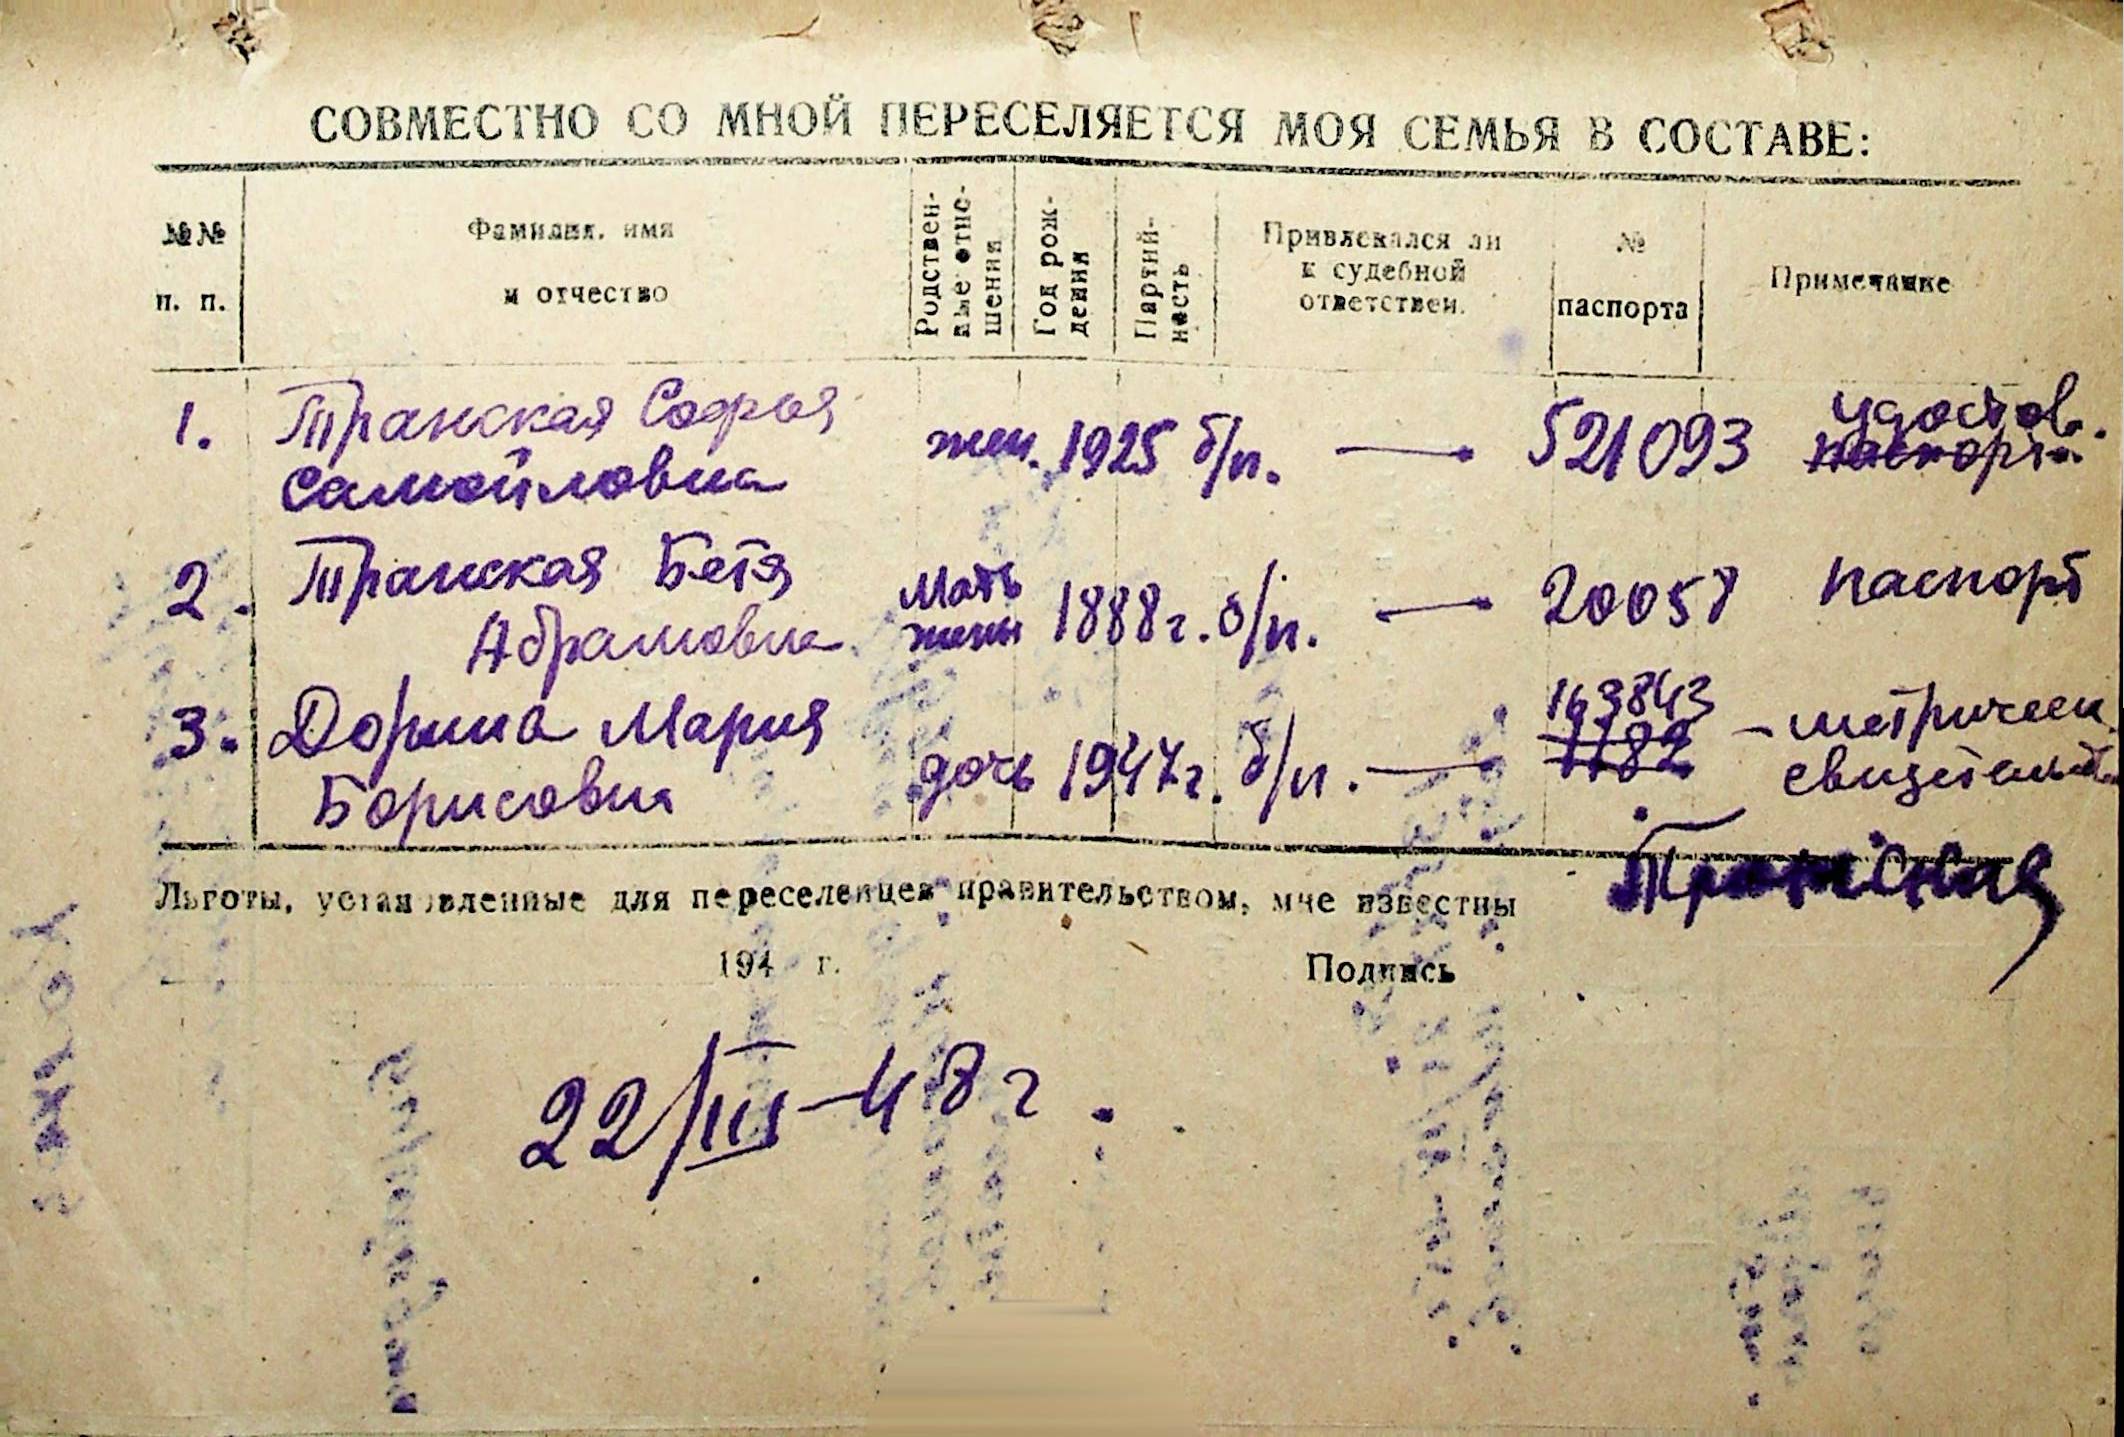 СОВМЕСТНО СО МНОЙ ПЕРЕСЕЛЯЕТСЯ МОЯ СЕМЬЯ В СОСТАВЕ:
№№ п. п.
Фамилия, имя и отчество
Родственные отношения
Год рождения
Партийность
Привлекался ли к судебной ответствен.
№ паспорта
Примечание
1. Транская Софья Самойловна жен. 1925 б/п. — 521093 удостов. паспорт.
2. Транская Бетя Абрамовна Мать жены 1888 г. б/п. — 20058 паспорт
3. Дорина Мария Борисовна дочь 1947 г. б/п. — 163843 1182 – метрическ. свидетельст.
Льготы, установленные для переселенцев правительством, мне известны Транская
194 г. Подпись
22/III–48 г.